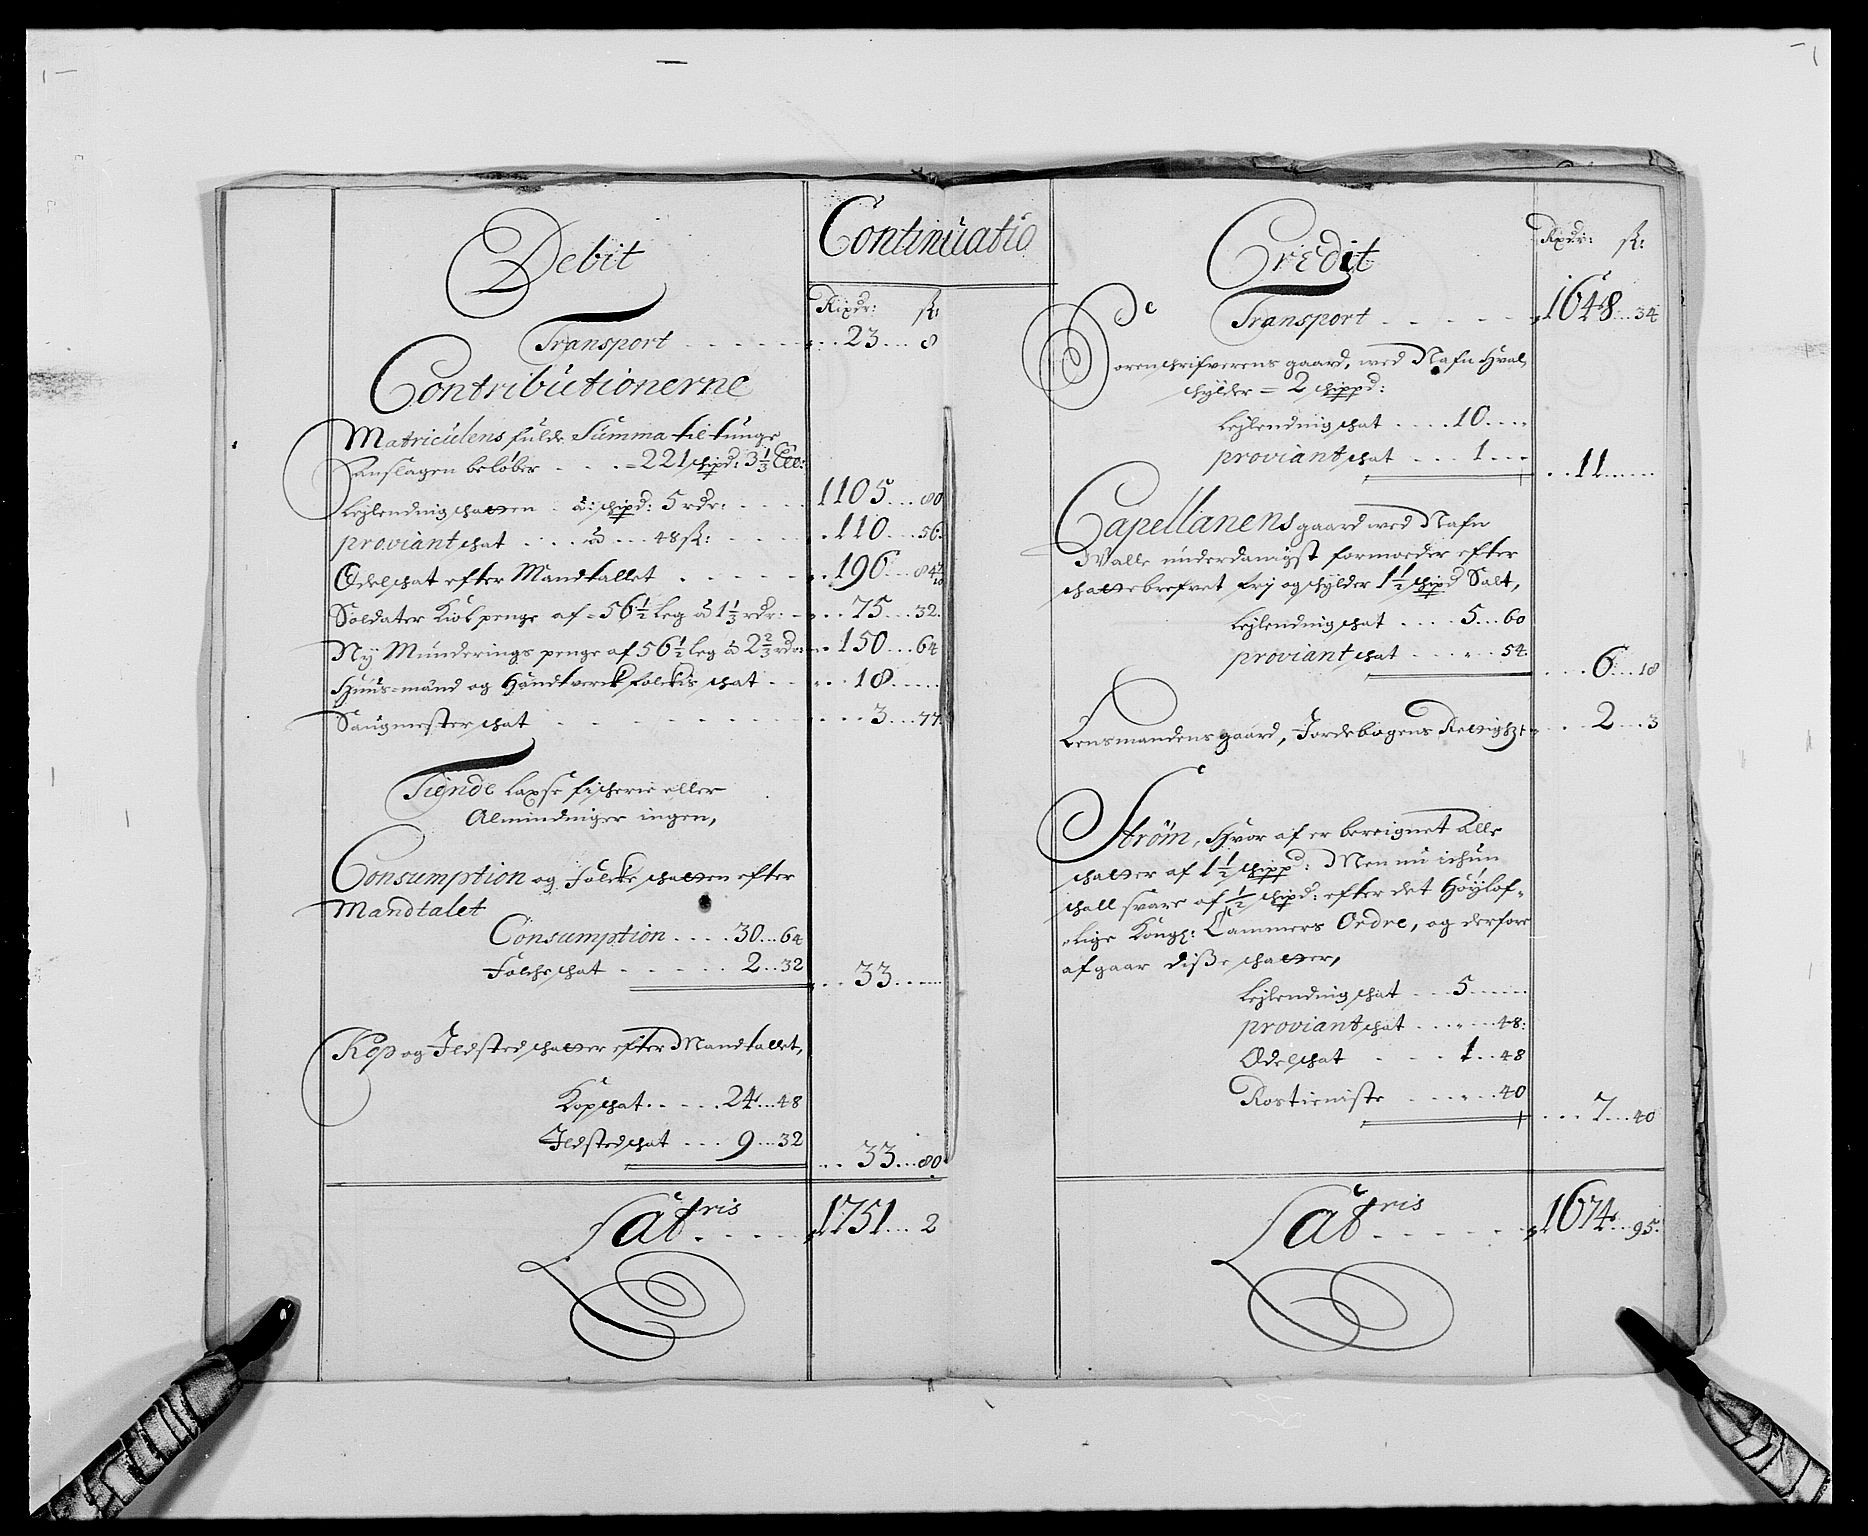 Continuatio
Debit
Rixdr: ſk:
Transport . . . . . 23 . . . 8
Contributionerne
Matriculens fulde Summa til tunge
anslagen beløber . . . . = 221 schipd: 3 1/3
Lejlending schatten . à: schipd: 5 rdr: . . . . 1105 . . . 80
proviant schat . . . . à . . . 48 ſk: . . . . 110 . . . 56
Odelschat efter Mandtallet . . . . . 196 . . . 84
Soldater Kiol penge af = 56 1/2 leg à 1 1/3 rdr: . . 75 . . . 32
Ny Munderings penge af 56 1/2 leg à 2 2/3 rdr . . 150 . . . 64
Huus-mænd og Handtverck folckis schat . . . . 18 . . . . .
Saugmester schat . . . . . . . . 3 . . . 77
Tiende Laxse fischerie eller
Almindniger ingen,
Consumption og Folcke schatten efter
Mandtalet
Consumption . . . . 30 . . 64
Folche schat . . . . . 2 . . 32
. . . 33 . . . . .
Kop og Ildsted schatter efter Mandtallet,
Kopschat . . . . . 24 . . . 48
Ildstedschat . . . 9 . . . 32
. . . 33 . . . 80
Lat ris . . . . . 1751 . . . 2
Credit
Rixdr: ſk:
Transport . . . . . 1648 . . . 34
Sorenschrifverens gaard, wed Nafn Hval,
schylder = 2 schippd:
Lejlending schat . . . . 10 . . . .
proviant schat . . . 1 . . .
. . . 11 . . . . .
Capellanens gaard wed Nafn
Walle underdanigst formoeder efter
schattebrefvet frj og schylder 1 1/2 schipd Salt,
Lejlending schat . . . . 5 . . . 60
proviant schat . . . . . . 54
. . . . 6 . . . 18
Lensmandens gaard, Jordebogens . . . . 2 . . . 3
Strøm, Hvor af er bereignet alle
schatter af 1 1/2 schippd: Men nu ichun
schall svare af 1/2 schipd: efter det Høylof-
-lige Kongl: Cammers Ordre, og derfore
afgaar disse schatter,
Lejlending schat . . . 5 . . . . .
proviant schat . . . . . . 48:
Odelschat . . . . 1 . . 48
Rostieniste . . . . . . 40
. . . 7 . . . 40
Lat ris . . . . . 1674 . . . 95